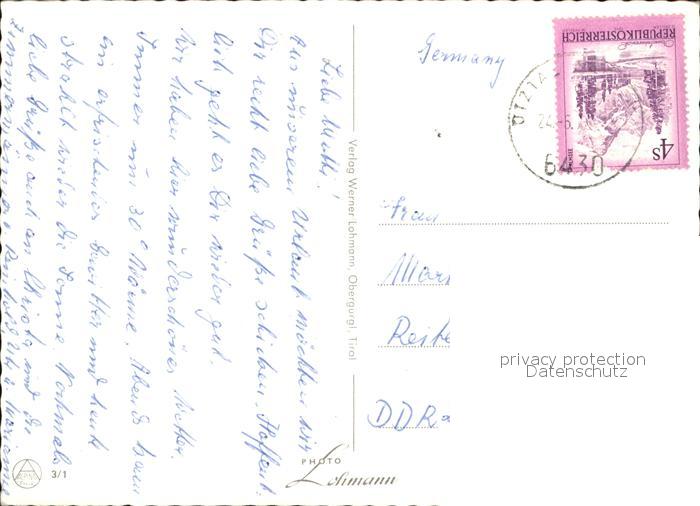 Liebe Mutti!
Aus unserem Urlaub möchten wir
Dir recht liebe Grüße schicken. Hoffent-
lich geht es Dir wieder gut.
Wir haben hier wunderschönes Wetter.
Immer um 30° Wärme. Abends kam
ein erfrischender Gewitter und heute
strahlt wieder die Sonne. Nochmals
liebe Grüße auch an Christa und die
Verlag Werner Lohmann, Obergurgl, Tirol
PHOTO
Lohmann
3/1
Germany
REPUBLIK ÖSTERREICH
4S
ÖTZTA
24.-6.
6430
Frau
Mar
Reike
DDR
privacy protection
Datenschutz